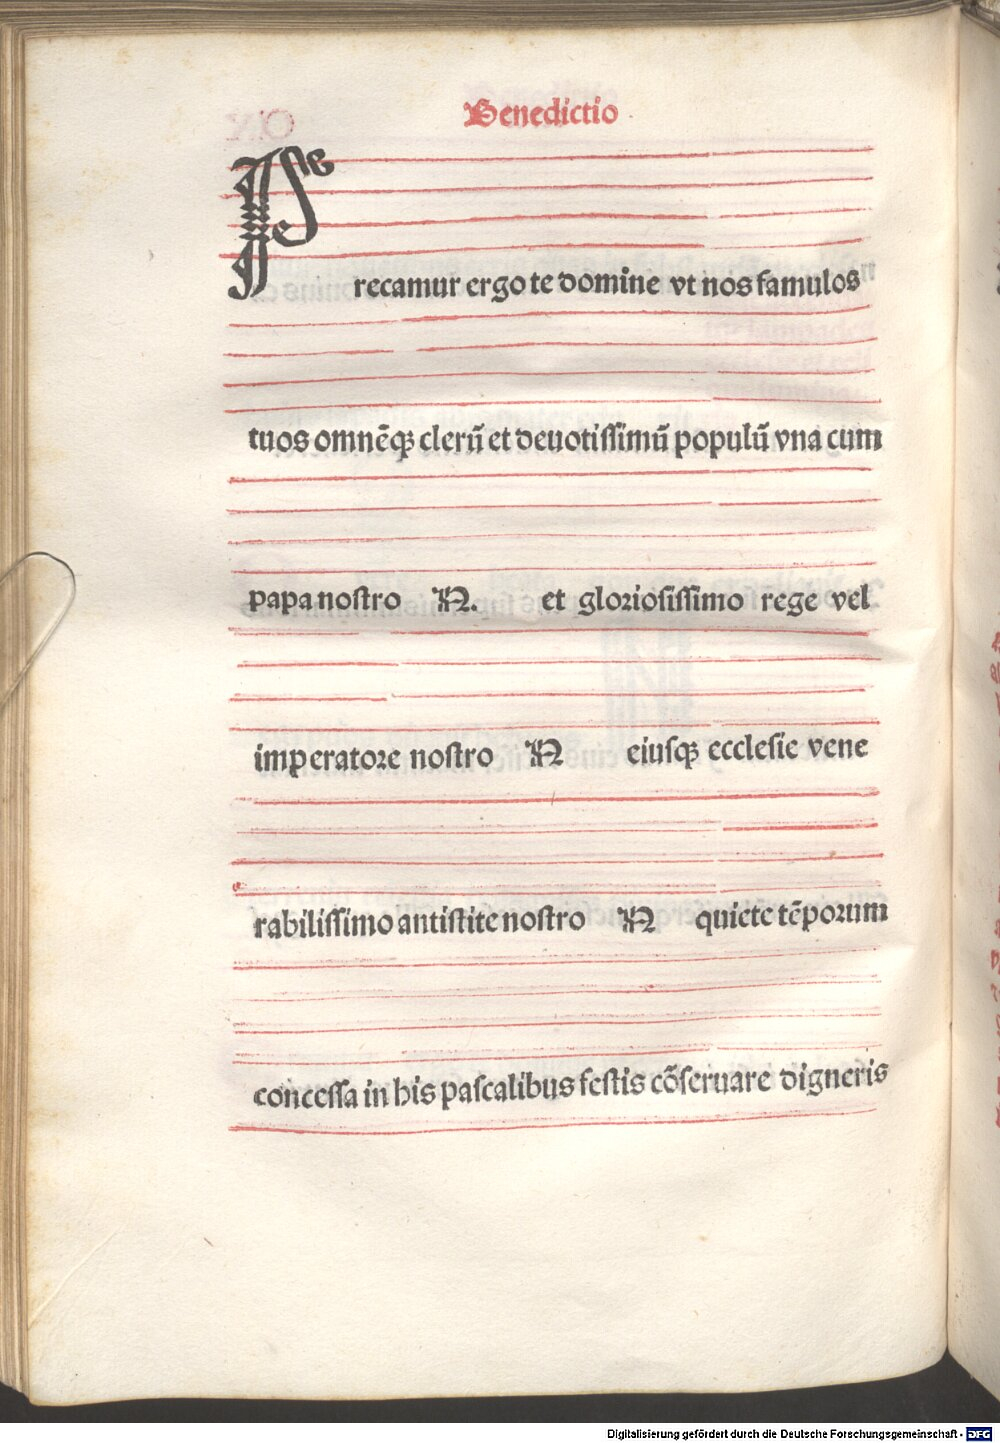 Benedictio
Precamur ergo te domine vt nos famulos
tuos omnēqꝫ clerū et deuotissimū populū vna cum
papa nostro N. et gloriosissimo rege vel
imperatore nostro N eiusqꝫ ecclesie vene
rabilissimo antistite nostro N quiete tēporum
concessa in his pascalibus festis cōseruare digneris
Digitalisierung gefördert durch die Deutsche Forschungsgemeinschaft - DFG